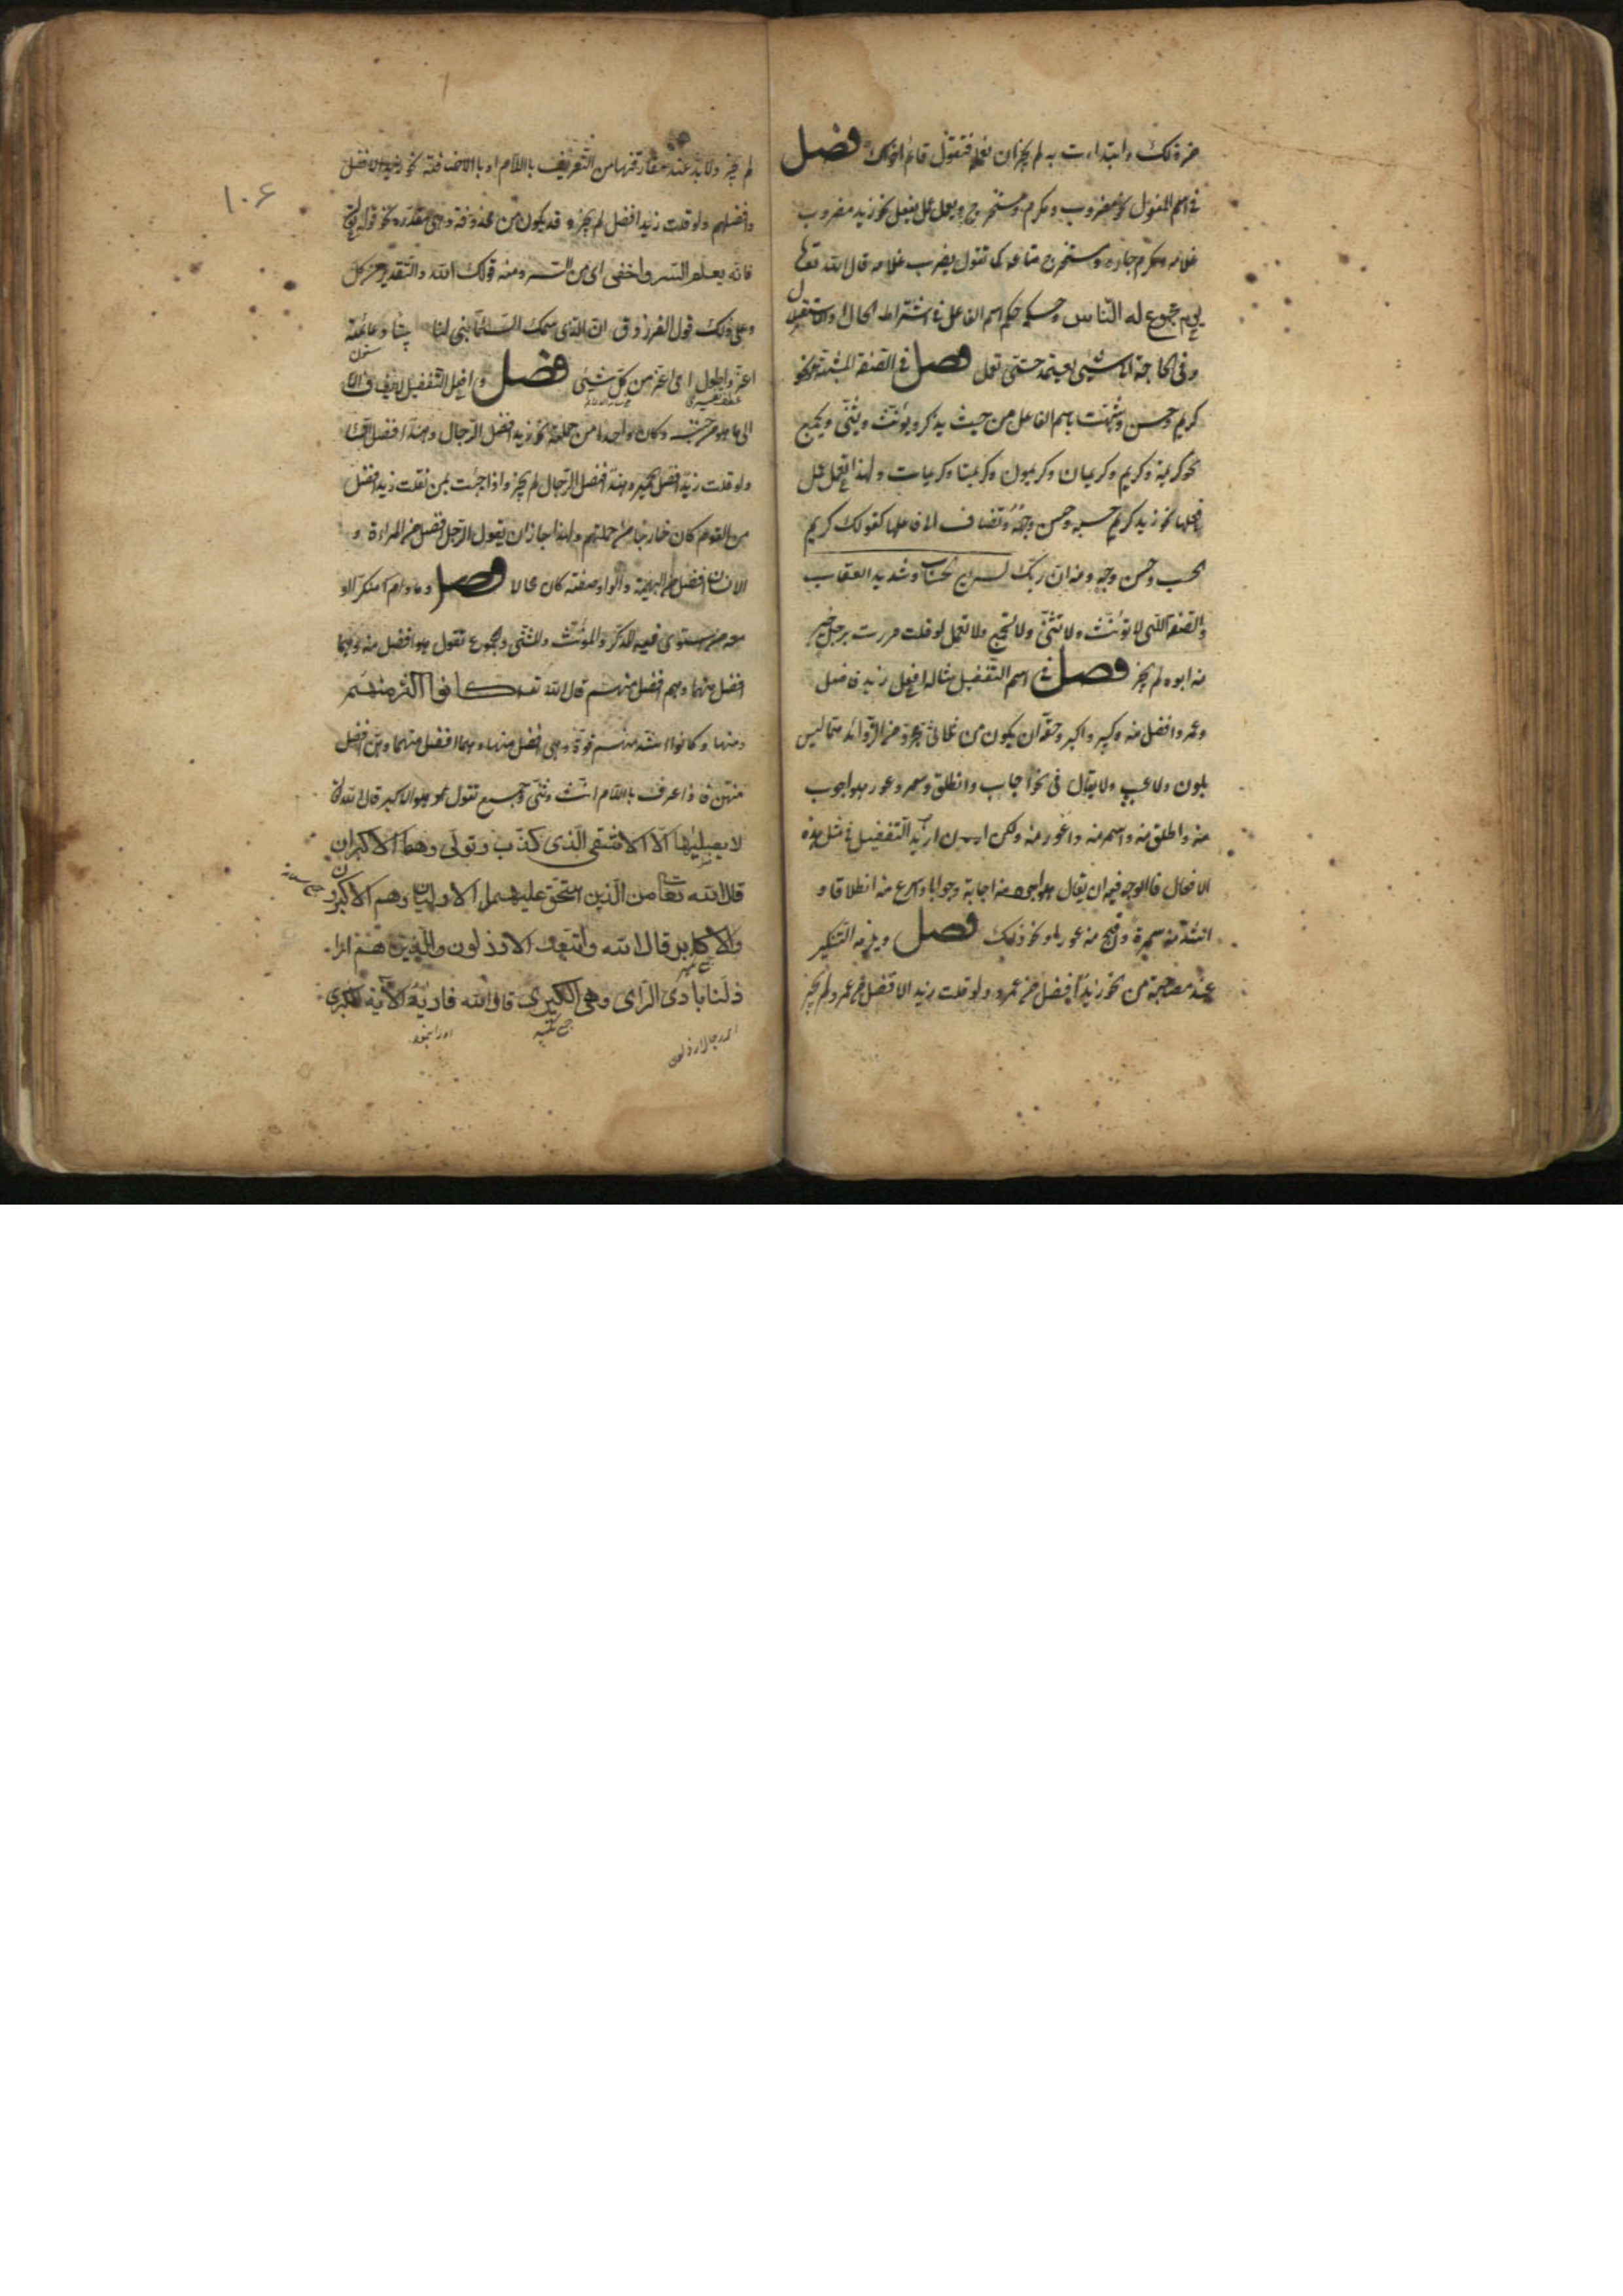 من ذلك وابتداءت به لم يجز ان تعمله فتقول قائم اخواك فصل
في اسم المفعول نحو مضروب ومكرم ومستخرج ويعمل عمل يفعل نحو زيد مضروب
غلامه ومكرم جاره ومستخرج متاعه كما تقول يضرب غلامه قال الله تعالى
يوم مجموع له الناس وحكمه حكم اسم الفاعل في اشتراط الحال والاستقبال
وفي الحاجة الى شيئ يعتمد حتى تعمل فصل في الصفة المشبهة نحو
كريم وحسن وشبهت باسم الفاعل من حيث يذكر ويؤنث ويثنى ويجمع
نحو كريمة وكريم وكريمان وكريمون وكريمتا وكريمات ولهذا تعمل عمل
فعلها نحو زيد كريم حسبه وحسن وجهه وتضاف الى فاعلها كقولك كريم
الحسب وحسن وجه ومنه ان ربك لسريع الحساب وشديد العقاب
والصفة اللتى لا تؤنث ولا تثنى ولا تجمع ولا تعمل لو قلت مررت برجل خير
منه ابوه لم يجز فصل في اسم التفضيل مثاله افعل زيد فاضل
وعمر وافضل منه وكبير واكبر وحقه ان يكون من ثلاثي مجرد من الزوائد مما ليس
بلون ولا عيب ولا يقال في نحو اجاب وانطلق وسمر وعور هو اجوب
منه واطلق منه واسمر منه واعور منه ولكن اريد التفضيل في مثل هذه
الافعال فالوجه فيه ان يقال هو اجود منه اجابة وجوابا واسرع منه انطلاقا و
اشد منه سمرة واقبح منه عورا ونحو ذلك فصل ويلزمه التنكير
عند مصاحبة من نحو زيد افضل من عمرو ولو قلت زيد الافضل من عمرو لم يجز
١٠٦
لم يجز ولا بد عند مفارقتها من التعريف باللام او بالاضافة نحو زيد الافضل
وافضلهم ولو قلت زيد افضل لم يجز وقد يكون من محذوفة وهي مقدرة نحو قوله تعالى
فانه يعلم السر واخفى اى من السر ومنه قولك الله والتقدير من كل
وعلى ذلك قول الفرزدق ان الذى سمك السماء بنى لنا بيتا دعائمه
ستون
اعز واطول اى اعز من كل شيئ فصل وافعل التفضيل يضاف
عطف تفسيرى
الى ما هو من جنسه وكان واحدا من جملته نحو زيد افضل الرجال وهند افضل
ولو قلت زيد افضل الحمير وهند افضل الرجال لم يجز واذا جئت بمن فقلت زيد افضل
من القوم كان خارجا من جملتهم ولهذا جاز ان يقول الرجل افضل من المراءة و
الانسان افضل من البهيمة كان محالا فصل وما دام منكرا
معه من يستوى فيه المذكر والمؤنث والمثنى والمجموع تقول هو افضل منه وهما
افضل منهما وهم افضل منهم قال الله تعالى كانوا اكثر منهم
ومنها وكانوا اشد منهم قوة وهي افضل منها وهما افضل منهما وهن افضل
منهن فاذا عرف باللام انث وثنى وجمع تقول نحو هو الاكبر قال الله تعالى
لا يصليها الا الاشقى الذى كذب وتولى وهما الاكبران
قال الله تعالى من الذين استحق عليهم الاوليان وهم الاكبرون
والاكابر قال الله واتبعك الارذلون والذين هم ارا
ذلنا بادى الراى وهي الكبرى قال الله فاريه الآية الكبرى